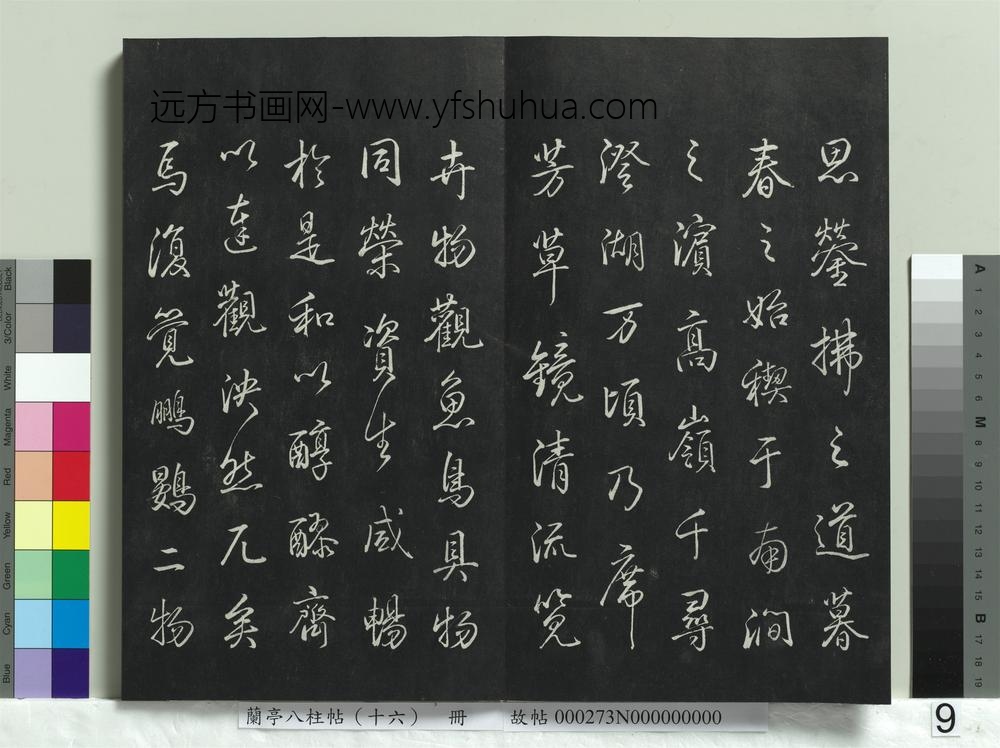 远方书画网-www.yfshuhua.com
思鎣拂之道暮
春之始稧于南澗
之濱高嶺千尋
澄湖万頃乃席
芳草鏡清流覽
卉物觀魚鳥具物
同榮資生咸暢
於是和以醇醪齊
以達觀泱然兀矣
焉復覺鵬鷃二物
蘭亭八柱帖（十六） 冊 故帖 000273N000000000
9
Black
3/Color
White
Magenta
Red
Yellow
Green
Cyan
Blue
A
1
2
3
4
5
6
M
8
9
10
11
12
13
14
15
B
17
18
19